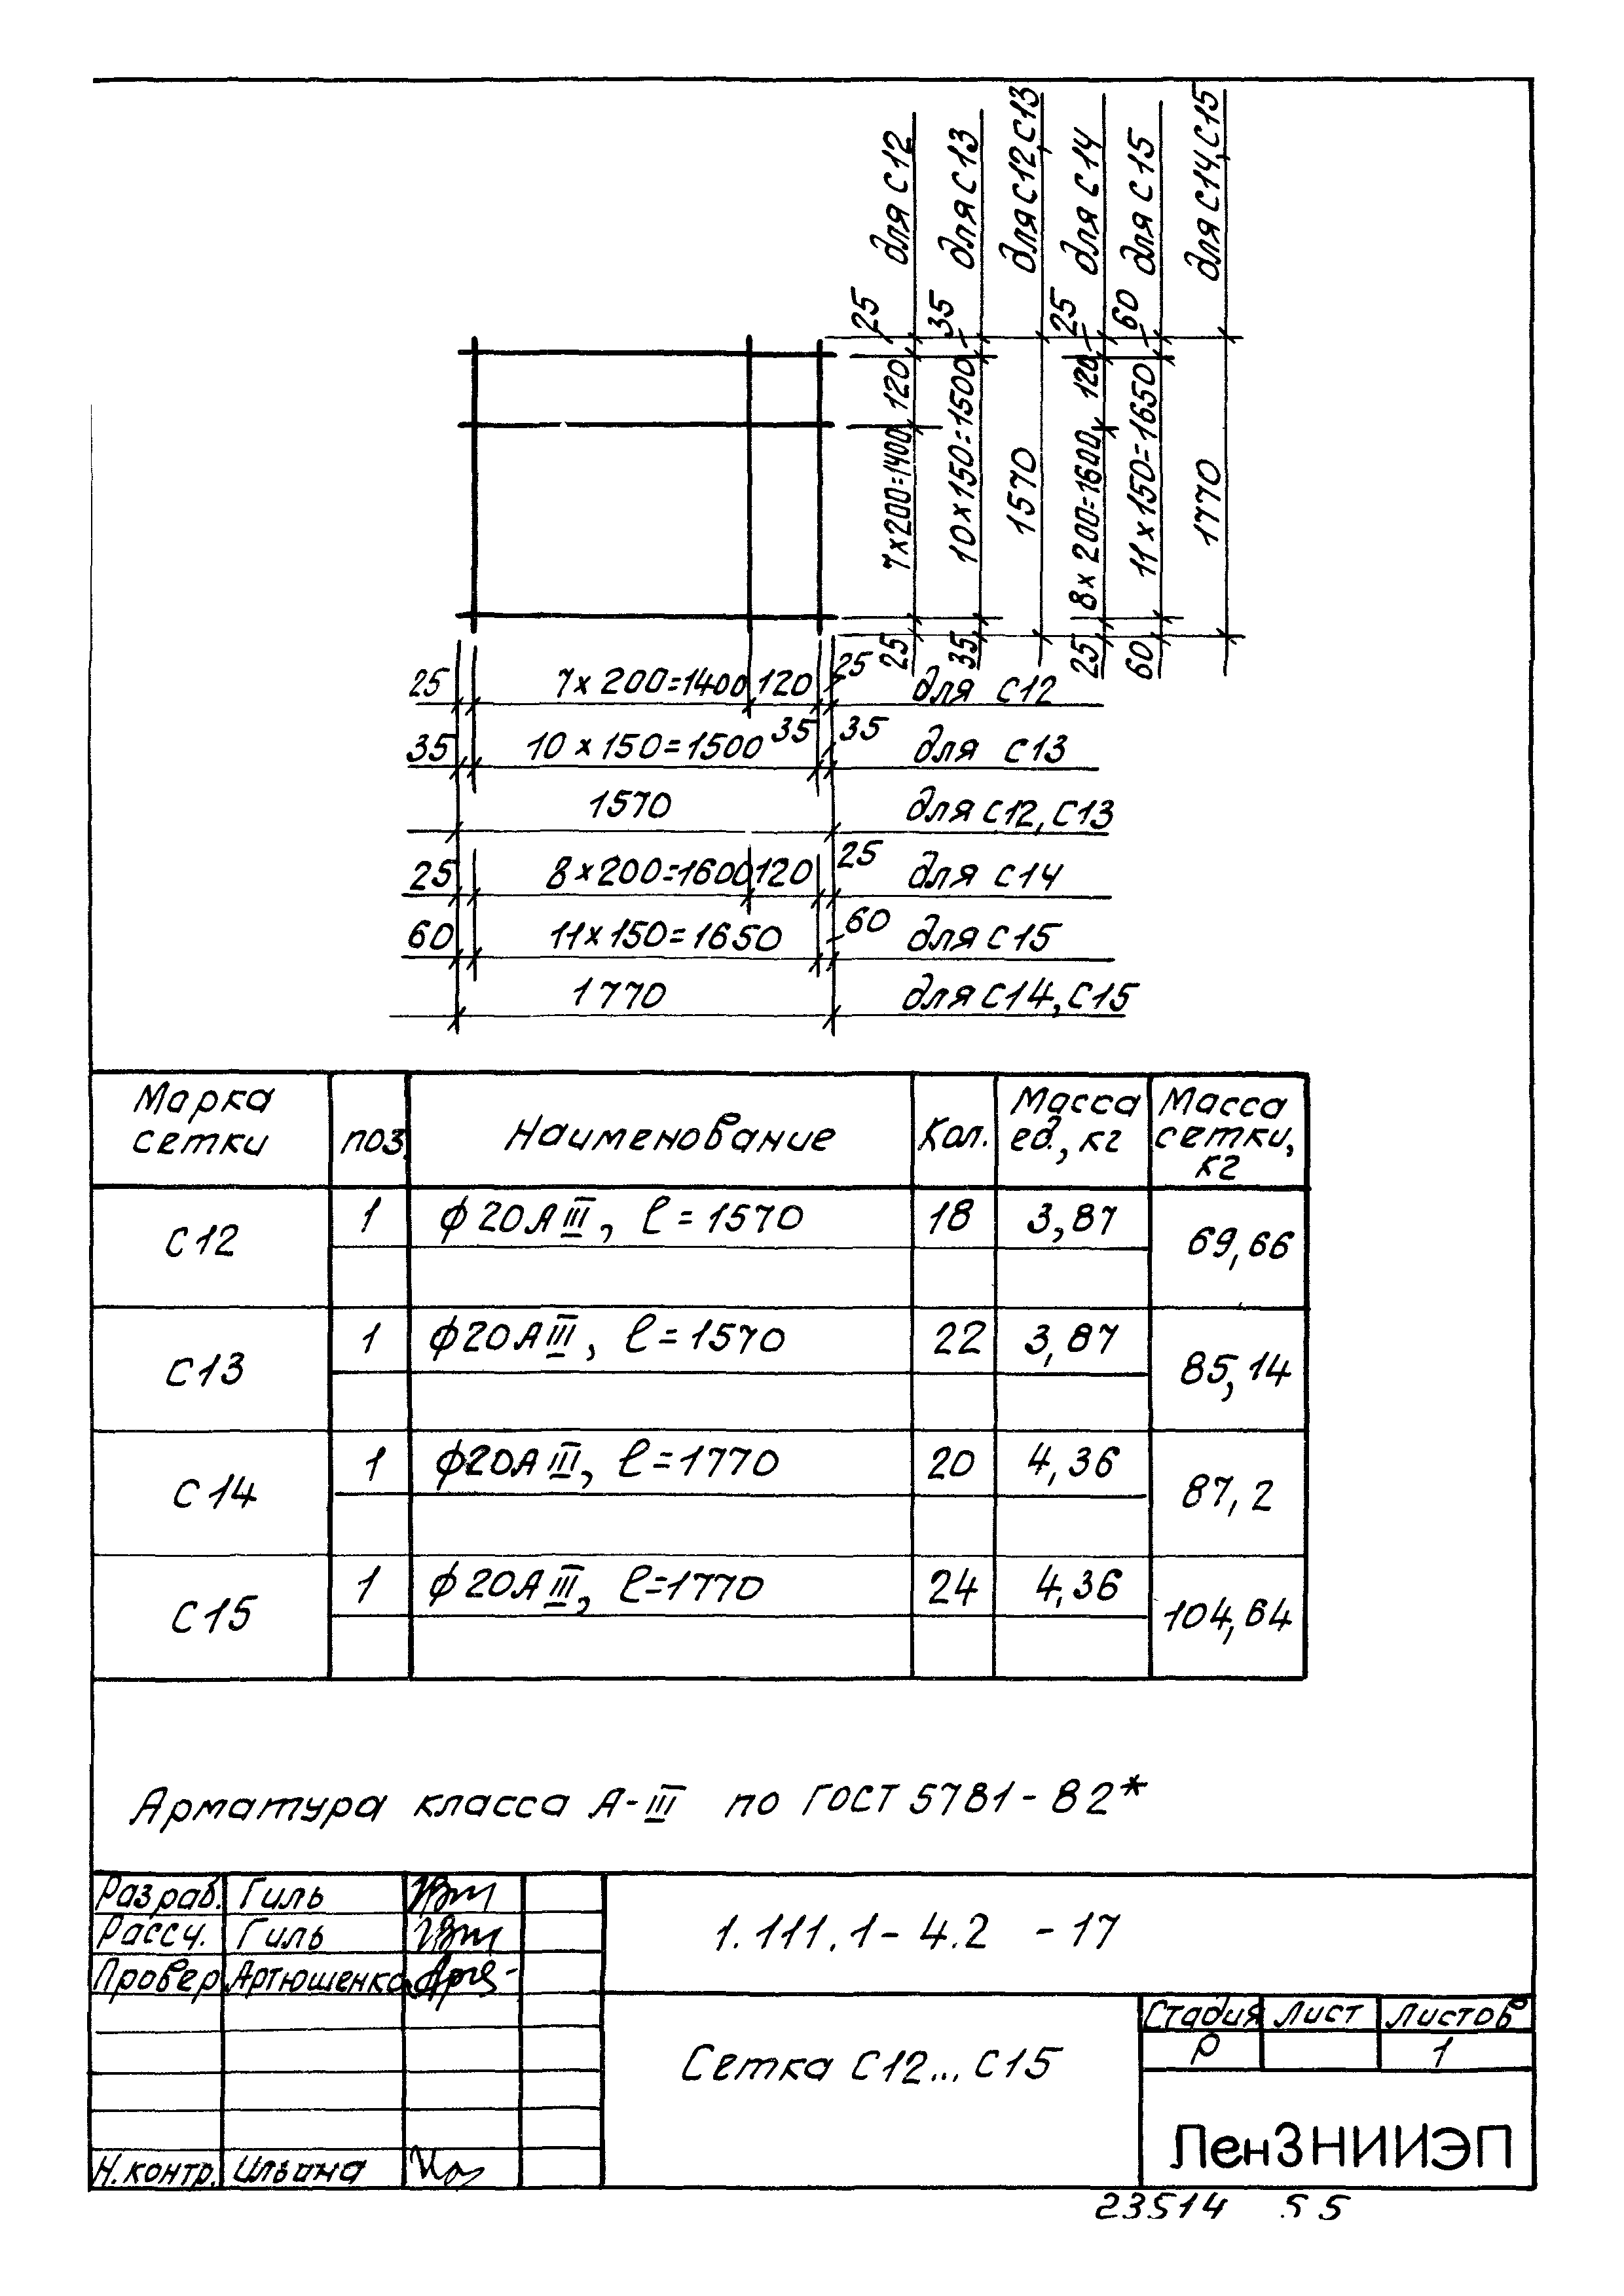 для С12
для С13
для С12, С13
для С14
для С15
для С14, С15
25
35
25
60
120
10х150=1500
120
11х150=1650
7х200=1400
1570
8х200=1600
1770
25
35
25
60
25 7х200=1400 120 25 для С12
35 10х150=1500 35 35 для С13
1570 для С12, С13
25 8х200=1600 120 25 для С14
60 11х150=1650 60 для С15
1770 для С14, С15
Марка сетки поз. Наименование Кол. Масса ед., кг Масса сетки, кг
С12 1 ф20АIII, ℓ=1570 18 3,87 69,66
С13 1 ф20АIII, ℓ=1570 22 3,87 85,14
С14 1 ф20АIII, ℓ=1770 20 4,36 87,2
С15 1 ф20АIII, ℓ=1770 24 4,36 104,64
Арматура класса А-III по ГОСТ 5781-82*
Разраб. Гиль
Рассч. Гиль
Провер. Артюшенко
Н.контр. Ильина
1.111.1-4.2 -17
Сетка С12...С15
Стадия Лист Листов
Р 1
ЛенЗНИИЭП
23514 55